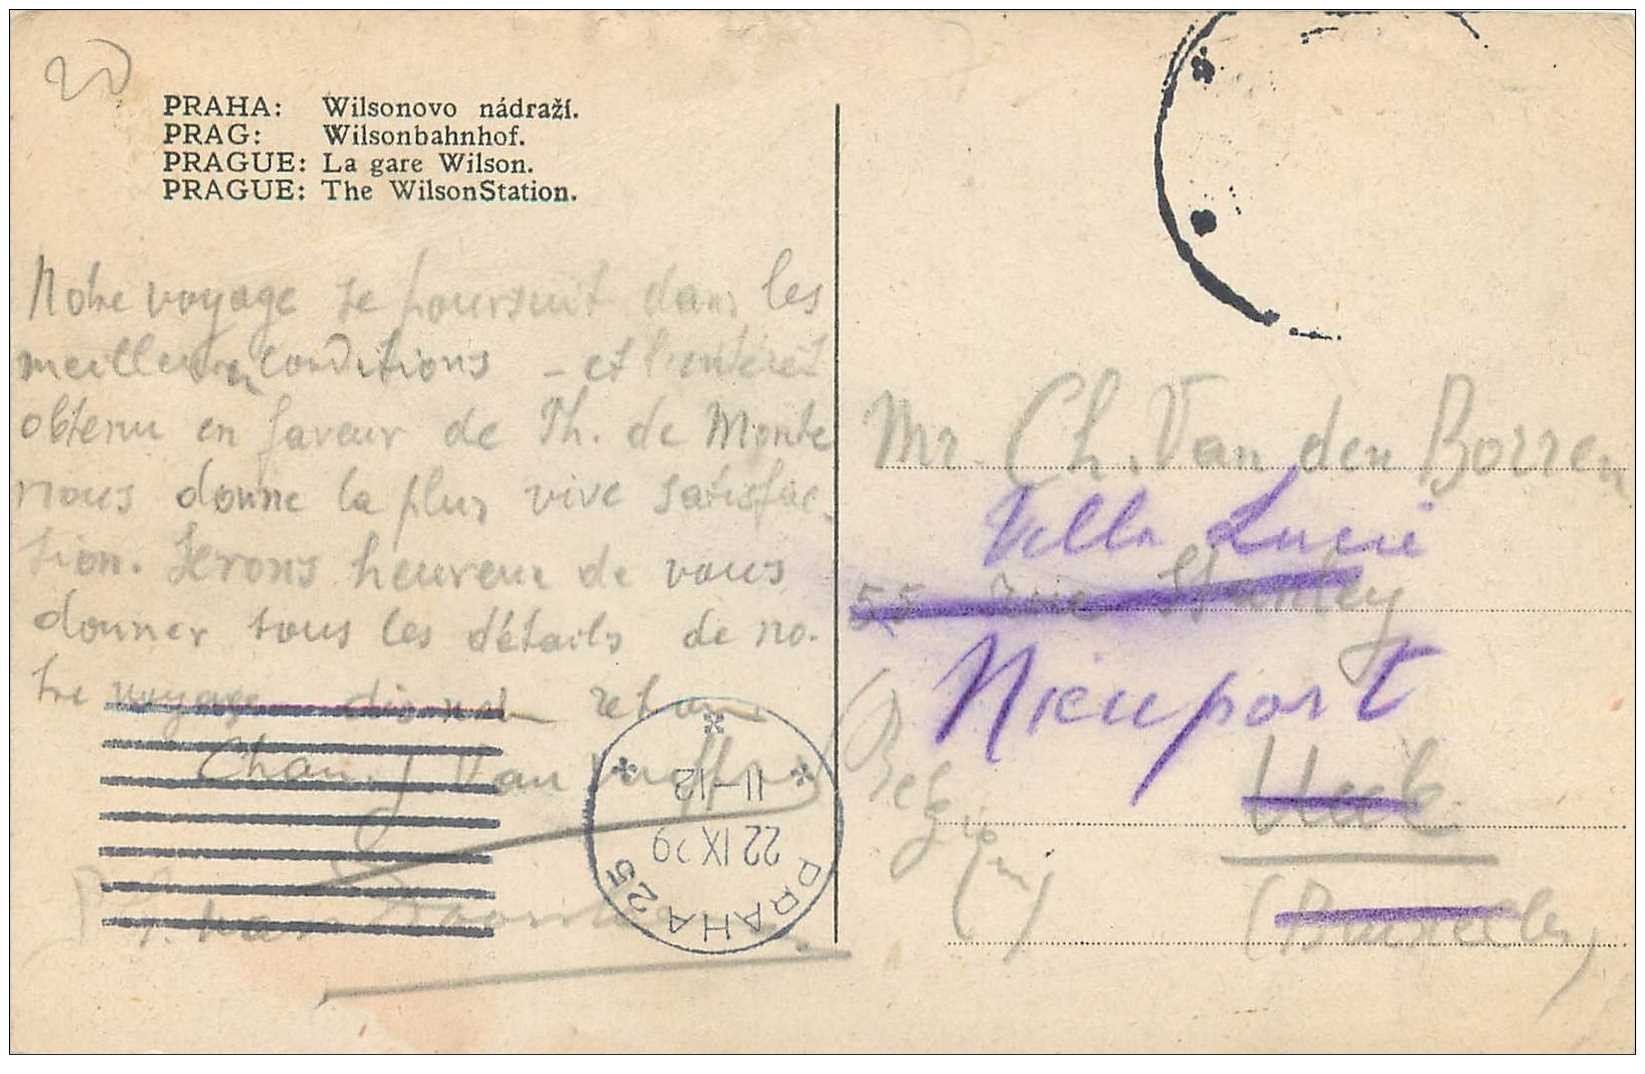 20
PRAHA: Wilsonovo nádraží.
PRAG: Wilsonbahnhof.
PRAGUE: La gare Wilson.
PRAGUE: The WilsonStation.
Notre voyage se poursuit dans les
meilleures conditions - et l'intérêt
obtenu en faveur de Ph. de Monte
nous donne la plus vive satisfac-
tion. Serons heureux de vous
donner tous les détails de no-
tre voyage dès notre retour
Chan. J. Van Nuffel
PRAHA 25
22 IX 29
11-12
Mr. Ch. Van den Borren
Villa Lucie
55 rue Stanley
Nieuport
Uccle
(Bruxelles)
(Belgium)